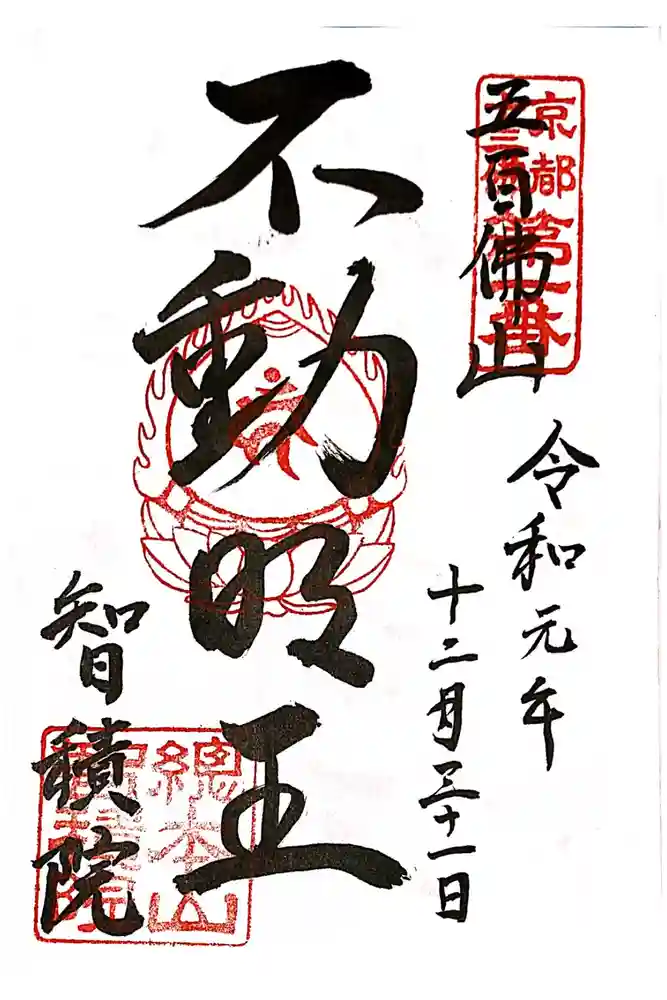 五百佛山
京都
十三佛
第一番
令和元年
十二月三十一日
不動明王
智積院
總本山
智積院